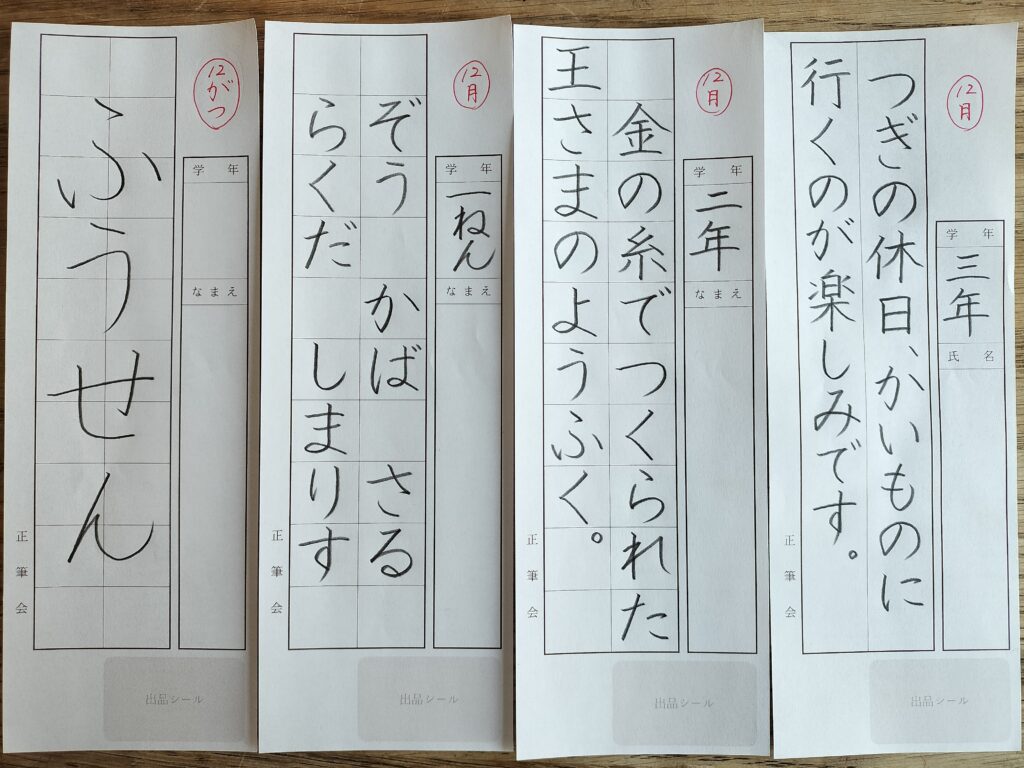 12がつ
学年
なまえ
ふうせん
正筆会
出品シール
12月
学年
一ねん
なまえ
ぞう かば さる
らくだ しまりす
正筆会
出品シール
12月
学年
二年
なまえ
金の糸でつくられた
王さまのようふく。
正筆会
出品シール
12月
学年
三年
氏名
つぎの休日、かいものに
行くのが楽しみです。
正筆会
出品シール